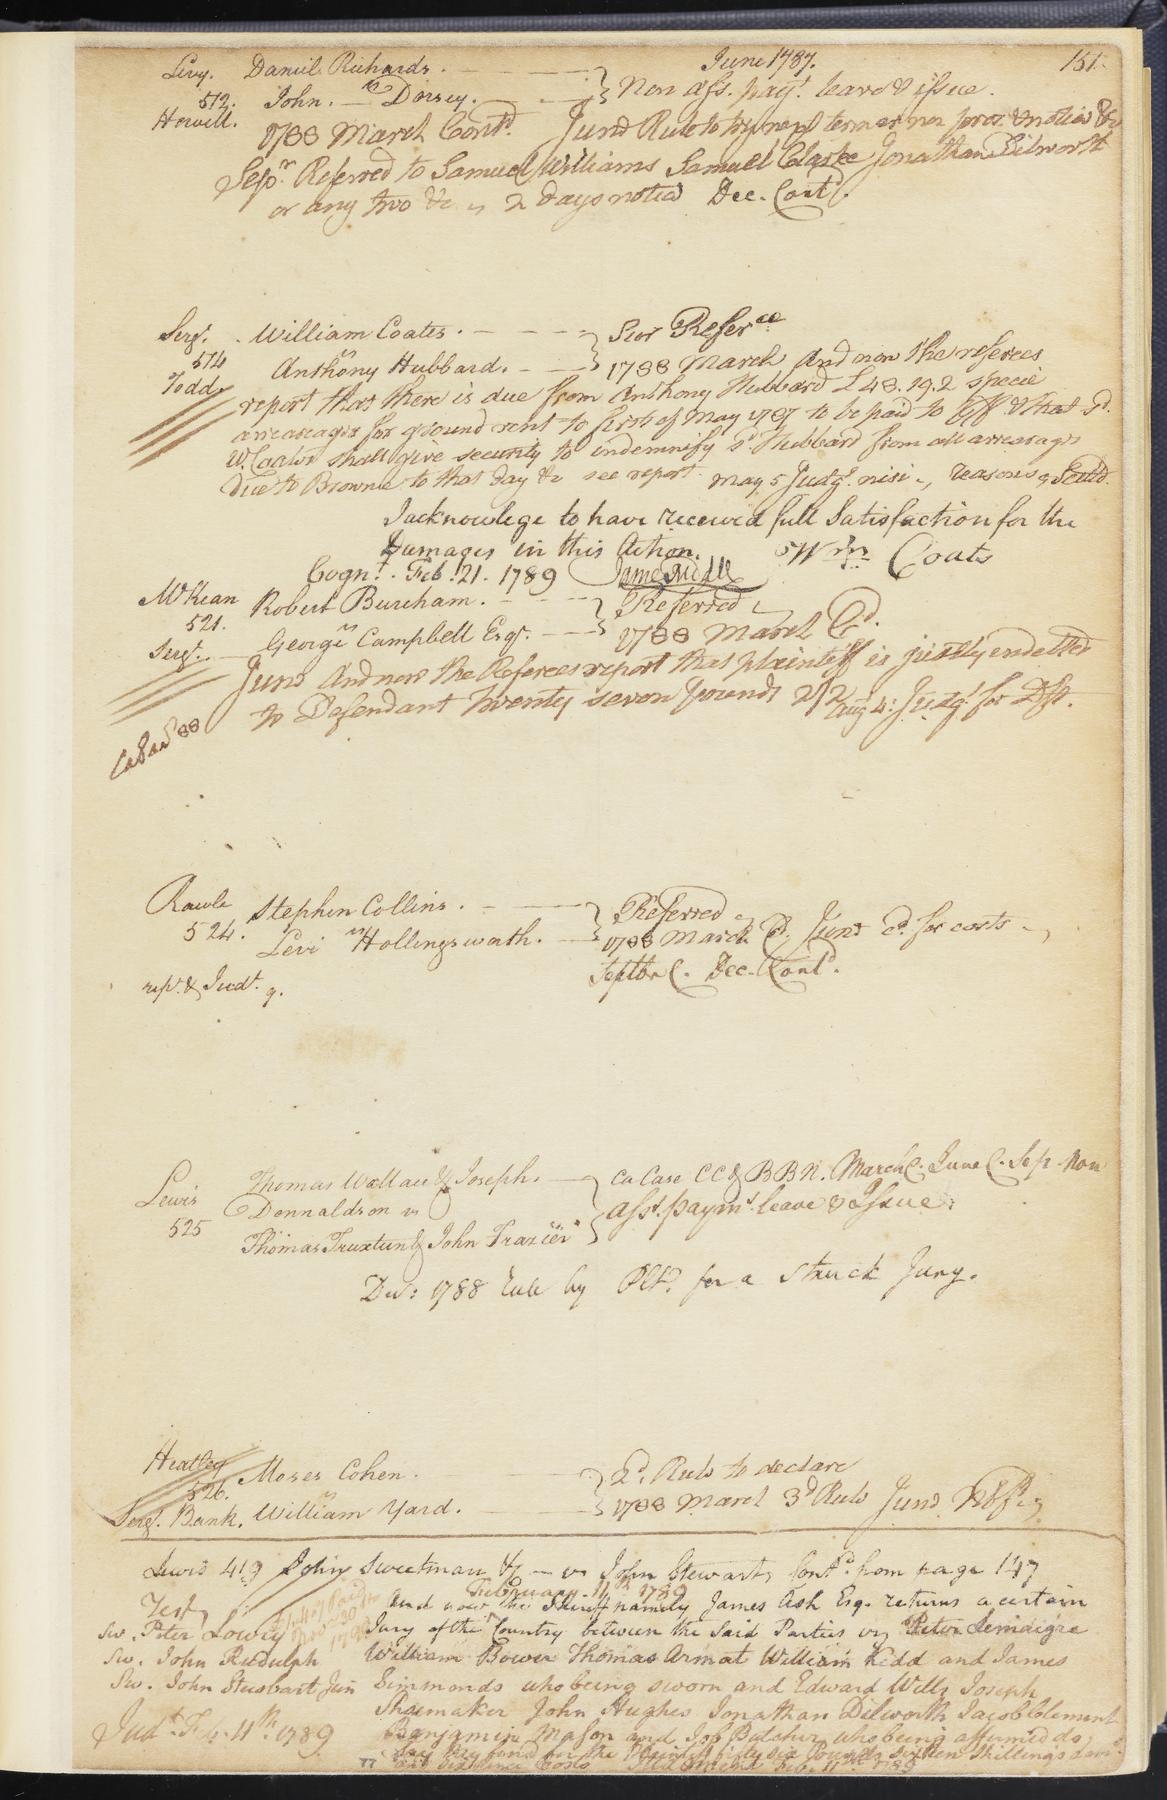 June 1787. 151.
Levy. Daniel Richards.
512. vs Non ass. paymt. leave & issue.
Howell. John Dorsey.
1788 March Contd. June Rule to try next term or non pros. & notice &c
Sepr. Referred to Samuel Williams Samuel Clarke Jonathan Dilworth
or any two &c 2 days notice Dec. Contd.
Sergt. William Coates. Sur Referce
514 vs 1788 March And now the referees
Todd Anthony Hubbard.
report that there is due from Anthony Hubbard £48.19.2 specie
arrearages for ground rent to first of May 1787 to be paid to & that sd.
W. Coates shall give security to indemnify sd Hubbard from all arrearages
due to Browne to that day &c see report. May 5 Judgt. nisi reasons
I acknowlege to have received full Satisfaction for the
Damages in this Action. Wm Coats
Cogn. Feb. 21. 1789
McKean Robert Burcham. Referred
521. vs 1788 March Cd.
Sergt. George Campbell Esqr.
June And now the Referees report that plaintiff is justly endetted
to Defendant twenty seven pounds 2/2 Aug 4: Judgt. for Deft.
Rawle Stephen Collins. Referred
524. vs 1788 March C. June Cd. for costs
Levi Hollingsworth.
Septbr C. Dec. Contd.
rept. & Judt.
Lewis Thomas Wallace & Joseph Ca Case CC & BBN. March C. June C. Sep. Non
525 Donnaldson vs asst. paymt. leave & Issue
Thomas Truxtun & John Frazier
Dec: 1788 Rule by Plt. for a Struck Jury.
Heatley Moses Cohen. 2d. Rule to declare
526. vs 1788 March 3d Rule June
Sergt. Bank. William Yard.
Lewis 419 John Sweetman & vs John Stewart Contd. from page 147
February 11th 1789
Test And now the Sheriff namely James Ash Esq. returns a certain
Sw. Peter Lowry Jury of the Country between the Said Parties viz Peter Lemaigre
Sw. John Rudulph William Bower Thomas Armat William Kidd and James
Sw. John Stewart Jun Simmonds who being sworn and Edward Wells Joseph
Shoemaker John Hughes Jonathan Dilworth Jacob Clement
Judt. Feb. 11th 1789 Benjamin Mason and Job Butcher who being affirmed do
Say they find for the Plaintiff fifty six Pounds sixteen Shillings
and six Pence Costs Judgment Feb. 11th 1789
77